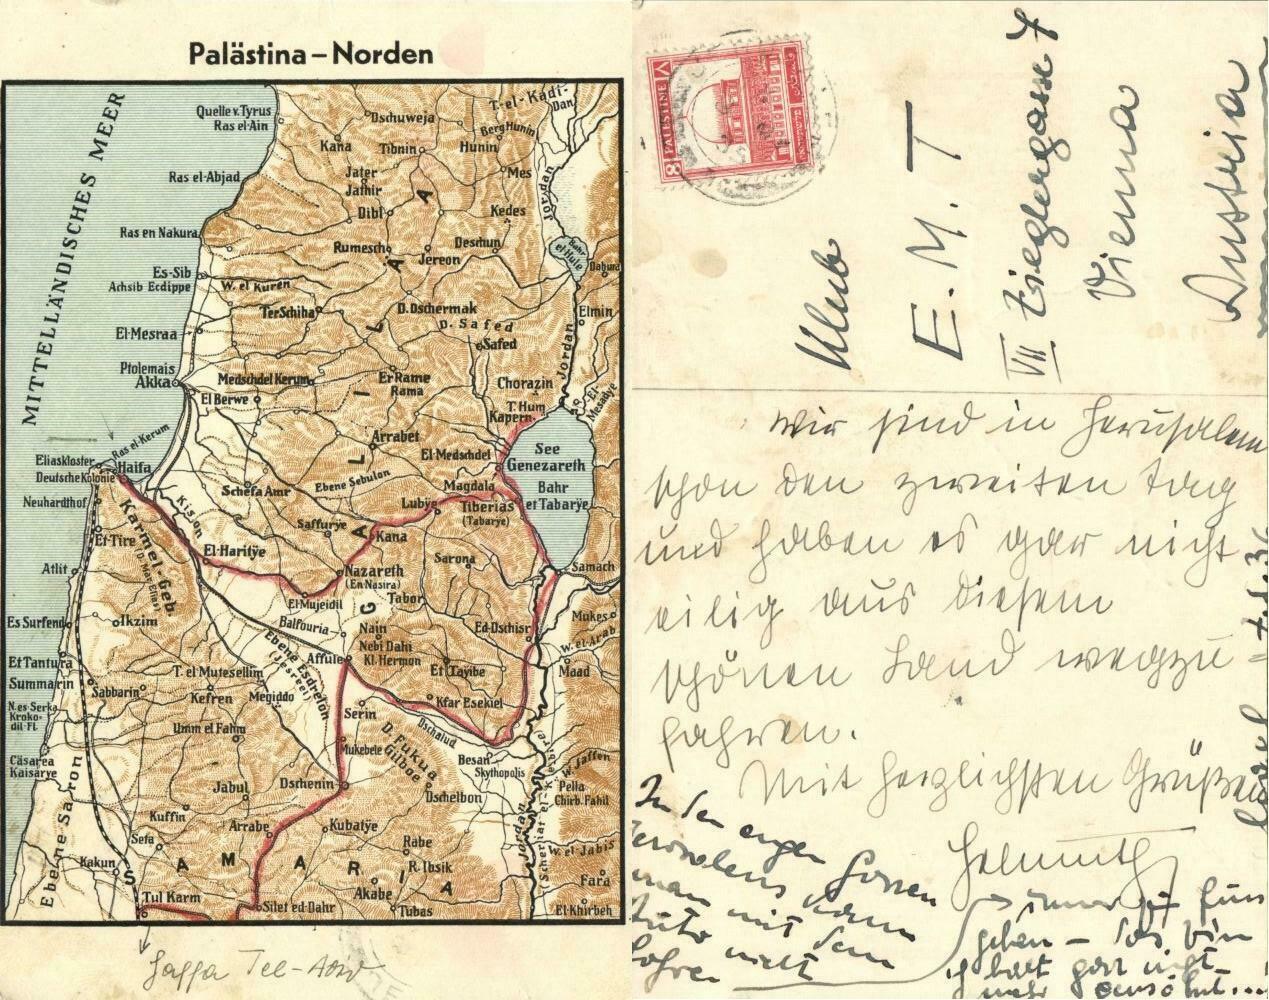 Palästina – Norden
MITTELLÄNDISCHES MEER
Quelle v. Tyrus
Ras el-Ain
Dschuweja
T-el-Kadi-
Dan
Kana
Tibnin
Berg Hunin
Hunin
Ras el-Abjad
Jater
Jathir
Mes
Jordan
Dibl
Kedes
Ras en Nakura
Rumesch
Jereon
Deschun
Bahr
el-Hule
Dabura
Es-Sib
Achsib Ecdippe
W. el Kuren
Ter Schiha
D. Dschermak
Elmin
El-Mesraa
D. Safed
Safed
Jordan
Ptolemais
Akka
Medschdel Kerum
Er Rame
Rama
Chorazin
El Berwe
T. Hum
Kapern.
El-
Mesadye
Ras el-Kerum
Arrabet
El Medschdel
See
Genezareth
Bahr
et Tabarÿe
Eliaskloster
Deutsche Kolonie
Haifa
Neuhardthof
Schefa Amr
Ebene Sebulon
Magdala
Lubÿe
Tiberias
(Tabarÿe)
Kison
Saffurÿe
Kana
Et-Tire
Karmel-Geb.
(D. Mar Elias)
El-Haritÿe
Sarona
Atlit
Nazareth
(En Nasira)
Samach
El-Mujeidil
Tabor
GALILÄA
Es Surfend
Ikzim
Balfouria
Nain
Nebi Dahi
Kl. Hermon
Ed-Dschisr
Mukes
W. el-Arab
Et Tantura
Summarin
Affule
Et Tayibe
Maad
Ebene Esdrelon
(Jesreel)
Sabbarin
T. el Mutesellim
Kefren
Megiddo
Kfar Esekiel
N. es Serka
Kroko-
dil-Fl.
Umm el Fahm
Serin
Dschalud
Mukebele
D. Fukua
Gilboe
Besan
Skythopolis
W. Jaffen
Cäsarea
Kaisarye
Dschenin
Pella
Chirb. Fahil
Jabul
Dschelbon
Ebene Saron
Kuffin
Arrabe
Kubatÿe
Jordan
Scheriat el-Kebire
Sefa
Rabe
W. el Jabis
Kakun
R. Ibsik
Fara
SAMARIA
Akabe
Tul Karm
Silet ed-Dahr
Tubas
El-Khirbeh
Jaffa Tel-Aviv
8 PALESTINE
Klub
E. M. T
VII Zieglergasse 7
Vienna
Austria
Wir sind in Jerusalem
schon den zweiten Tag
und haben es gar nicht
eilig aus diesem
schönen Land wegzu
fahren.
Mit herzlichsten Grüßen
Helmuth
In den engen
Jerusalems Gassen
kann
man mit dem
Auto nicht
fahren
immer zu Fuss
gehen – das bin
ich halt gar nicht
mehr gewöhnt...